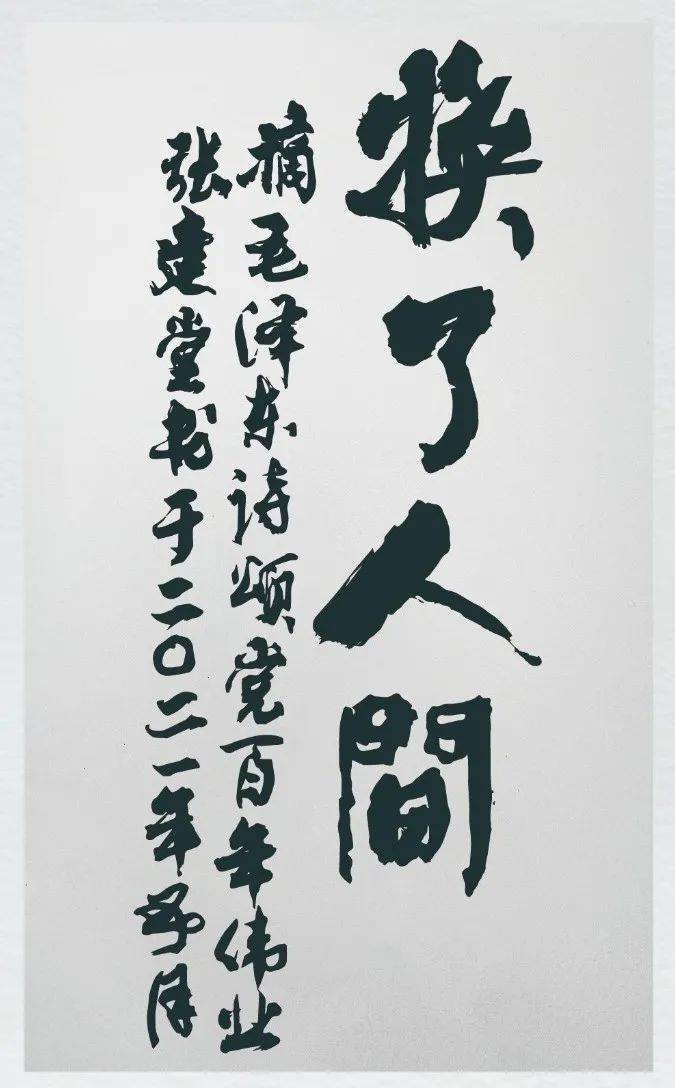 换了人間
摘毛泽东诗颂党百年伟业
张建堂书于二〇二一年月